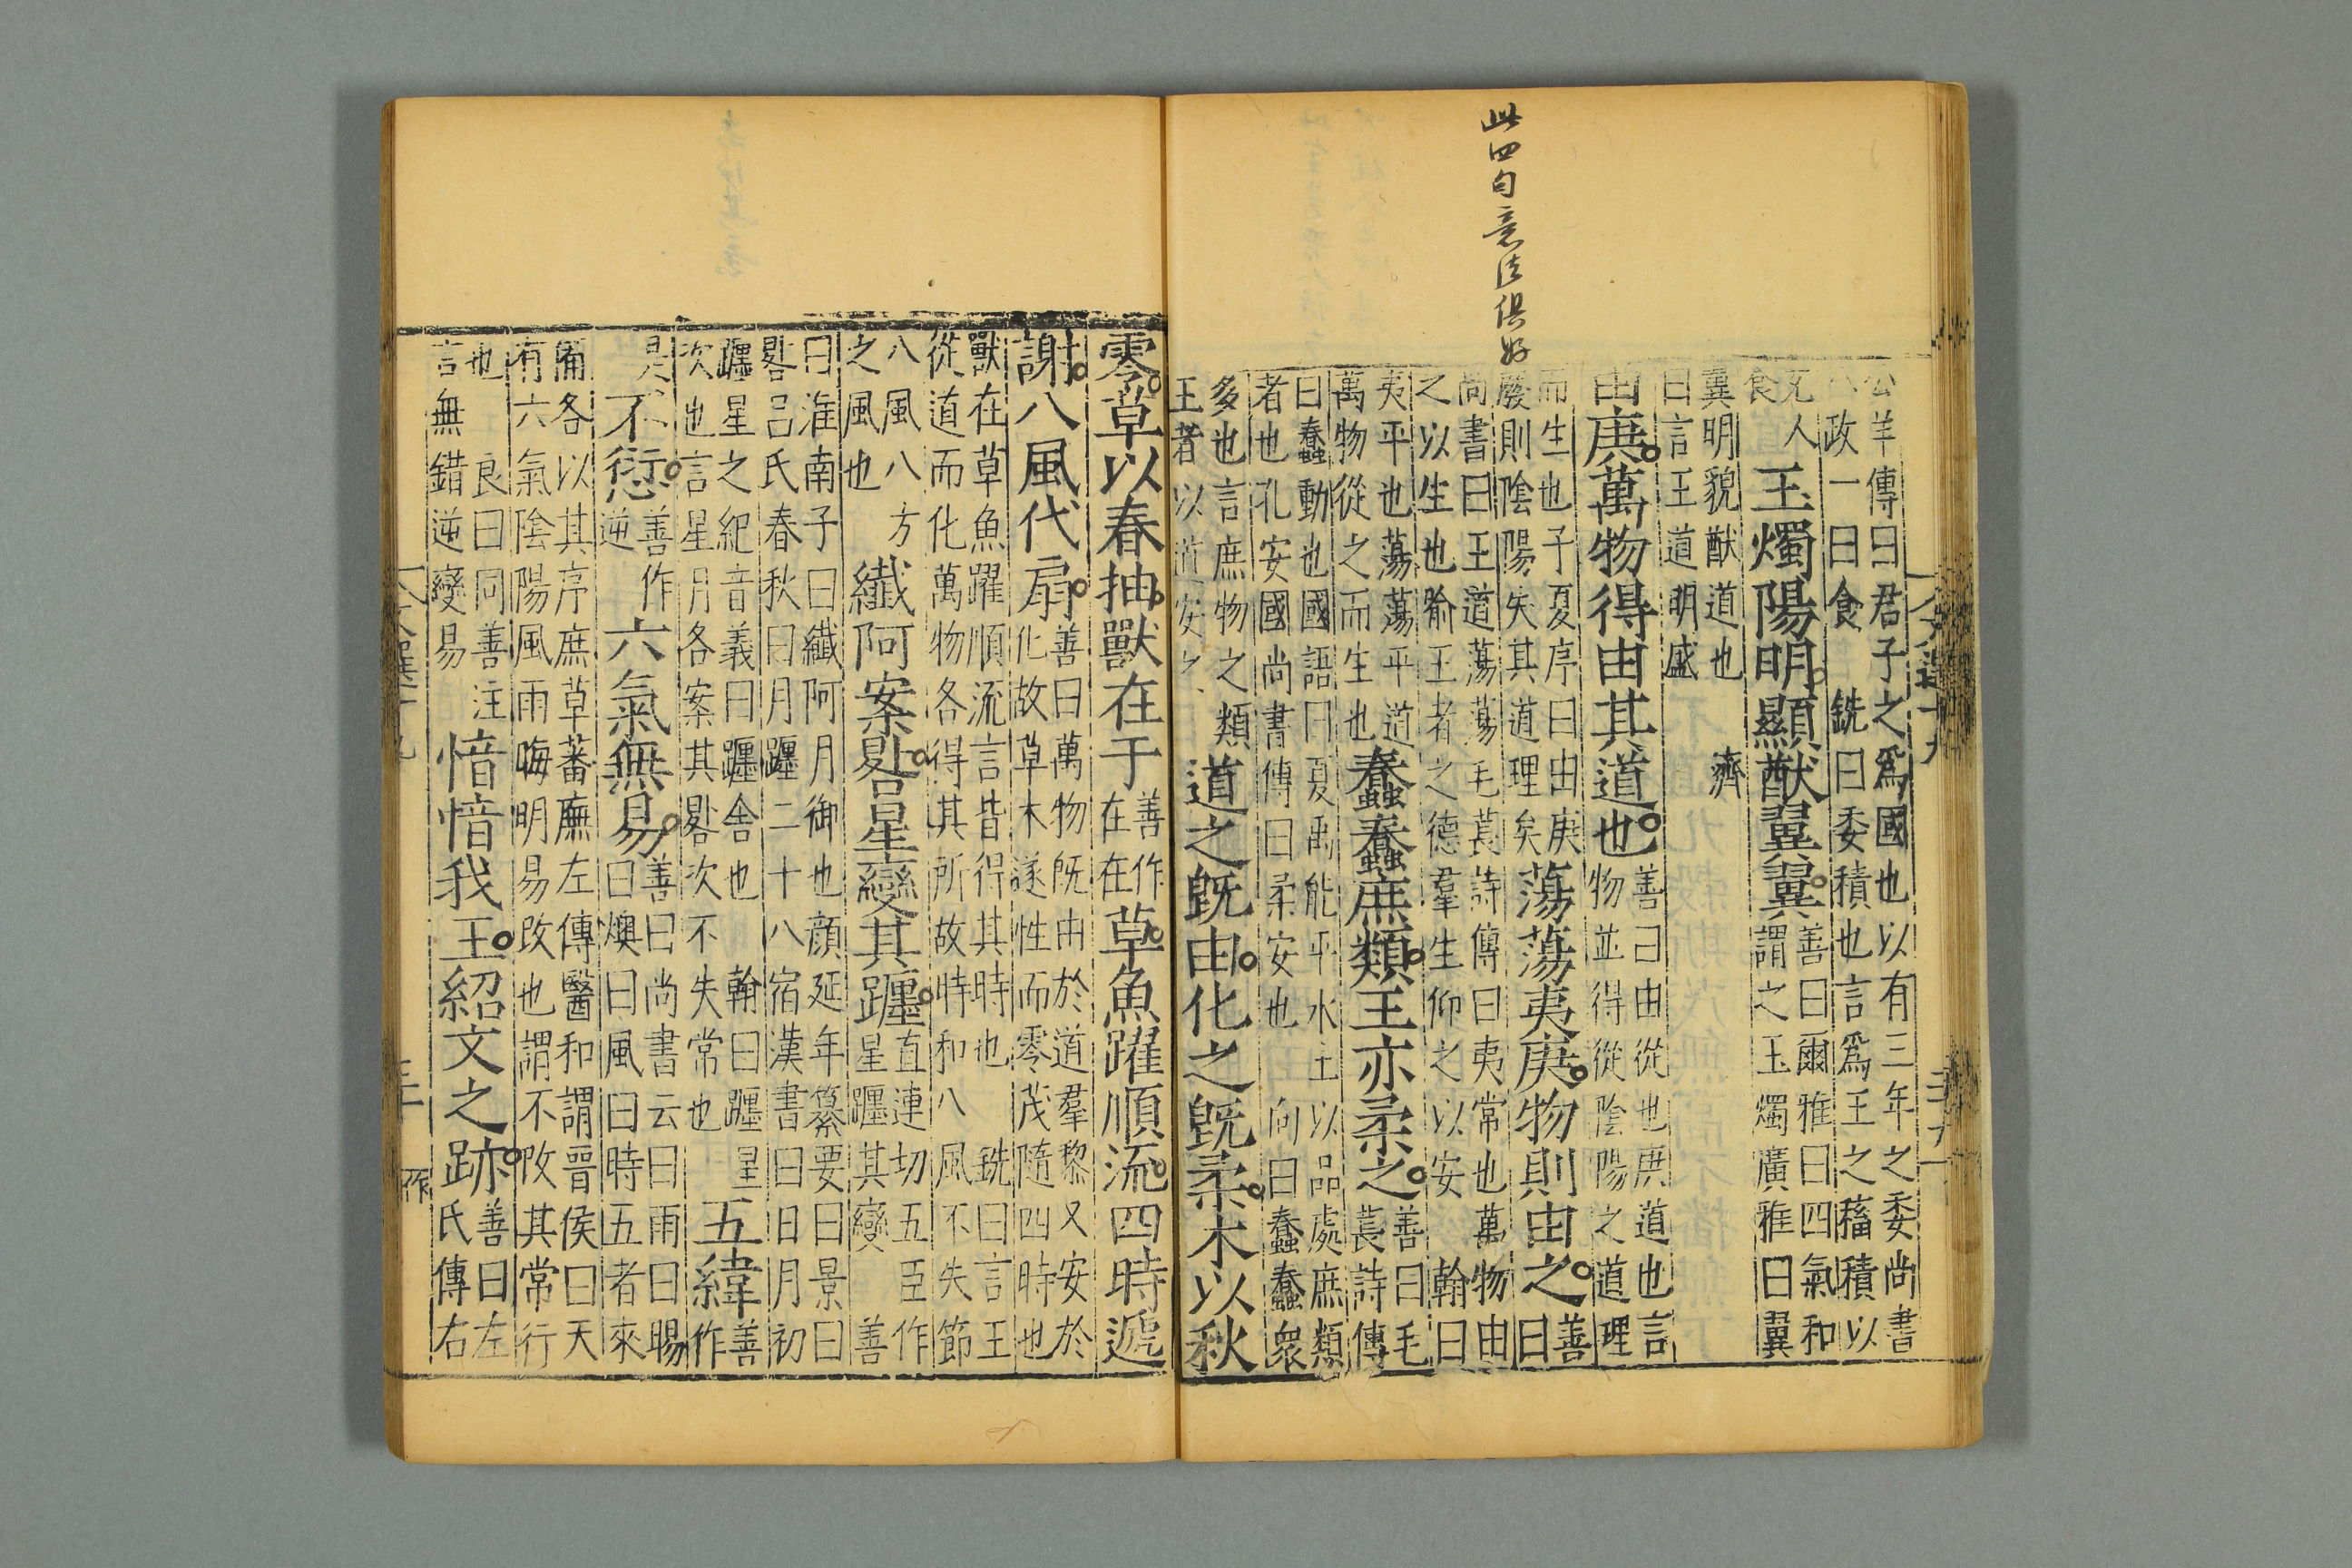 此四句意法俱好
公羊傳曰君子之爲國也以有三年之委尚書
八政一曰食　銑曰委積也言爲王之蓄積以
人
食
玉燭陽明顯猷翼翼
善曰爾雅曰四氣和
謂之玉燭廣雅曰翼
翼明貌猷道也　濟
曰言王道明盛
由庚萬物得由其道也
善曰由從也庚道也言
物並得從陰陽之道理
而生也子夏序曰由庚
廢則陰陽失其道理矣
蕩蕩夷庚物則由之
善
曰
尚書曰王道蕩蕩毛萇詩傳曰夷常也萬物由
之以生也喻王者之德羣生仰之以安　翰曰
夷平也蕩蕩平道
萬物從之而生也
蠢蠢庶類王亦柔之
善曰毛
萇詩傳
曰蠢動也國語曰夏禹能平水土以品處庶類
者也孔安國尚書傳曰柔安也　向曰蠢蠢衆
多也言庶物之類
王者以道安之
道之既由化之既柔木以秋
零草以春抽獸在于
善作
在在
草魚躍順流四時遞
謝八風代扇
善曰萬物既由於道羣黎又安於
化故草木遂性而零茂隨四時也
獸在草魚躍順流言皆得其時也　銑曰言王
從道而化萬物各得其所故時和八風不失節
八風八方
之風也
纖阿案晷星變其躔
直連切五臣作
星躔其變　善
曰淮南子曰纖阿月御也顔延年纂要曰景曰
晷呂氏春秋曰月躔二十八宿漢書曰日月初
躔星之紀音義曰躔舍也　翰曰躔星
次也言星月各案其晷次不失常也
五緯
善
作
是
不愆
善作
逆
六氣無易
善曰尚書云曰雨曰暘
曰燠曰風曰時五者來
備各以其序庶草蕃廡左傳醫和謂晉侯曰天
有六氣陰陽風雨晦明易改也謂不改其常行
也　良曰同善注
言無錯逆變易
愔愔我王紹文之跡
善曰左
氏傳右